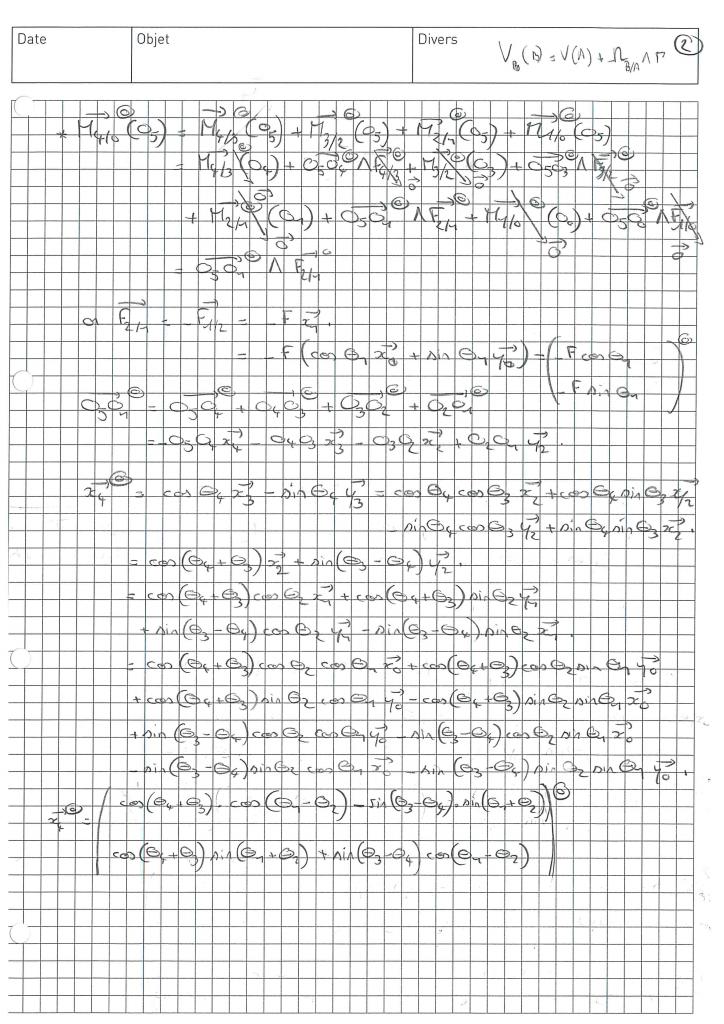 Date Objet Divers
V_B(B) = V(A) + Ω_{B/A} ∧ r
②
* M⃗_{4/0}^⓪(O₅) = M⃗_{4/3}^⓪(O₅) + M⃗_{3/2}^⓪(O₅) + M⃗_{2/1}^⓪(O₅) + M⃗_{1/0}^⓪(O₅)
= M⃗_{4/3}^⓪(O₄) + O₅O₄^⓪ ∧ F⃗_{4/3}^⓪ + M⃗_{3/2}^⓪(O₃) + O₅O₃^⓪ ∧ F⃗_{3/2}^⓪
0⃗ 0⃗ 0⃗ 0⃗
+ M⃗_{2/1}^⓪(O₁) + O₅O₁^⓪ ∧ F⃗_{2/1}^⓪ + M⃗_{1/0}^⓪(O₀) + O₅O₀^⓪ ∧ F⃗_{1/0}
0⃗ 0⃗ 0⃗
= O₅O₁^⓪ ∧ F⃗_{2/1}^⓪
or F⃗_{2/1} = -F⃗_{1/2} = -F x⃗₁.
= -F(cos θ₁ x⃗₀ + sin θ₁ y⃗₀) = (-F cos θ₁
-F sin θ₁)^⓪
O₅O₁^⓪ = O₅O₄^⓪ + O₄O₃^⓪ + O₃O₂^⓪ + O₂O₁^⓪
= -O₅O₄ x⃗₄ - O₄O₃ x⃗₃ - O₃O₂ x⃗₂ + O₂O₁ y⃗₂.
x⃗₄^⓪ = cos θ₄ x⃗₃ - sin θ₄ y⃗₃ = cos θ₄ cos θ₃ x⃗₂ + cos θ₄ sin θ₃ y⃗₂
- sin θ₄ cos θ₃ y⃗₂ + sin θ₄ sin θ₃ x⃗₂.
= cos(θ₄ + θ₃) x⃗₂ + sin(θ₃ - θ₄) y⃗₂.
= cos(θ₄ + θ₃) cos θ₂ x⃗₁ + cos(θ₄ + θ₃) sin θ₂ y⃗₁
+ sin(θ₃ - θ₄) cos θ₂ y⃗₁ - sin(θ₃ - θ₄) sin θ₂ x⃗₁.
= cos(θ₄ + θ₃) cos θ₂ cos θ₁ x⃗₀ + cos(θ₄ + θ₃) cos θ₂ sin θ₁ y⃗₀
+ cos(θ₄ + θ₃) sin θ₂ cos θ₁ y⃗₀ - cos(θ₄ + θ₃) sin θ₂ sin θ₁ x⃗₀
+ sin(θ₃ - θ₄) cos θ₂ cos θ₁ y⃗₀ - sin(θ₃ - θ₄) cos θ₂ sin θ₁ x⃗₀
- sin(θ₃ - θ₄) sin θ₂ cos θ₁ x⃗₀ - sin(θ₃ - θ₄) sin θ₂ sin θ₁ y⃗₀.
x⃗₄^⓪ = (cos(θ₄ + θ₃) . cos(θ₁ - θ₂) - sin(θ₃ - θ₄) . sin(θ₁ + θ₂)
cos(θ₄ + θ₃) sin(θ₁ + θ₂) + sin(θ₃ - θ₄) cos(θ₁ - θ₂))^⓪